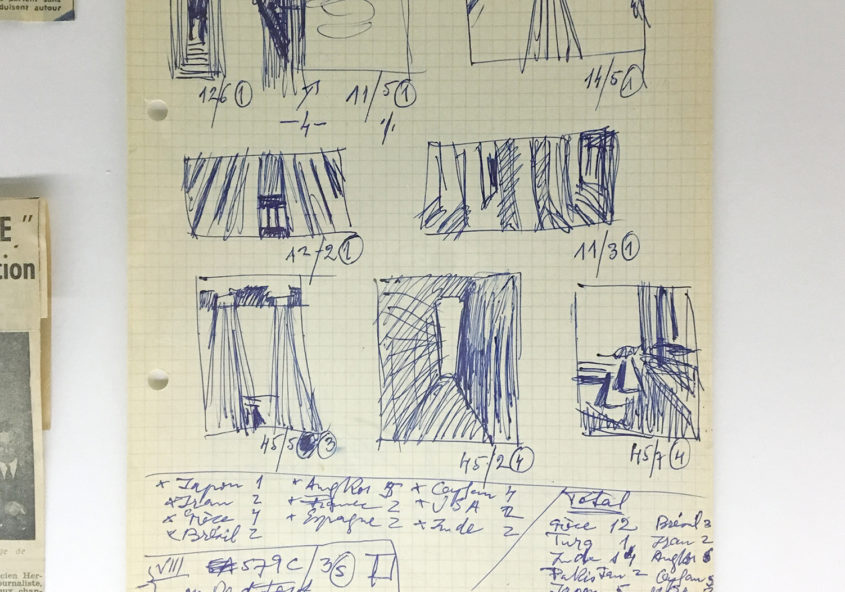 duisent autour
12/6 ①
—4—
11/5 ①
14/5 ①
12-2 ①
11/3 ①
E"
tion
45/5 ③
45/2 ④
45/7 ④
× Japon 1 × Angkor × Ceylan 4
× Iran 2 × France 2 × USA
× Grèce 4 × Espagne 2 × Inde 2
× Brésil 2
Total
Grèce 12 Brésil
Turq 1 Iran 2
Inde 14 Angkor
Pakistan 2 Ceylan 5
Japon 5
VIII 579C/3⑤
ge de
cien Her-
ournaliste,